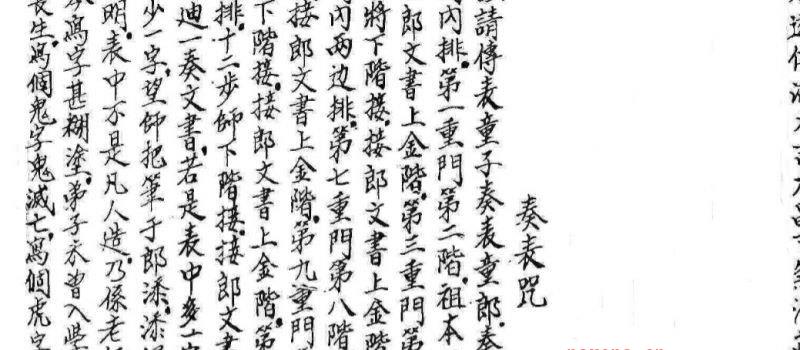 奏表咒
請傳表童子奏表童郎奏
內排第一重門第二階祖本
郎文書上金階第三重門第
將下階接接郎文書上金階
內两边排第七重門第八階
接郎文書上金階第九重門
下階接接郎文書上金階第
排十二步師下階接接郎文書
迪一奏文書若是表中多一
少一字望師把筆于郎添添
明表中不是凡人造乃係老
寫字甚糊塗弟子不曾入
生寫個鬼字鬼滅亡寫個虎字